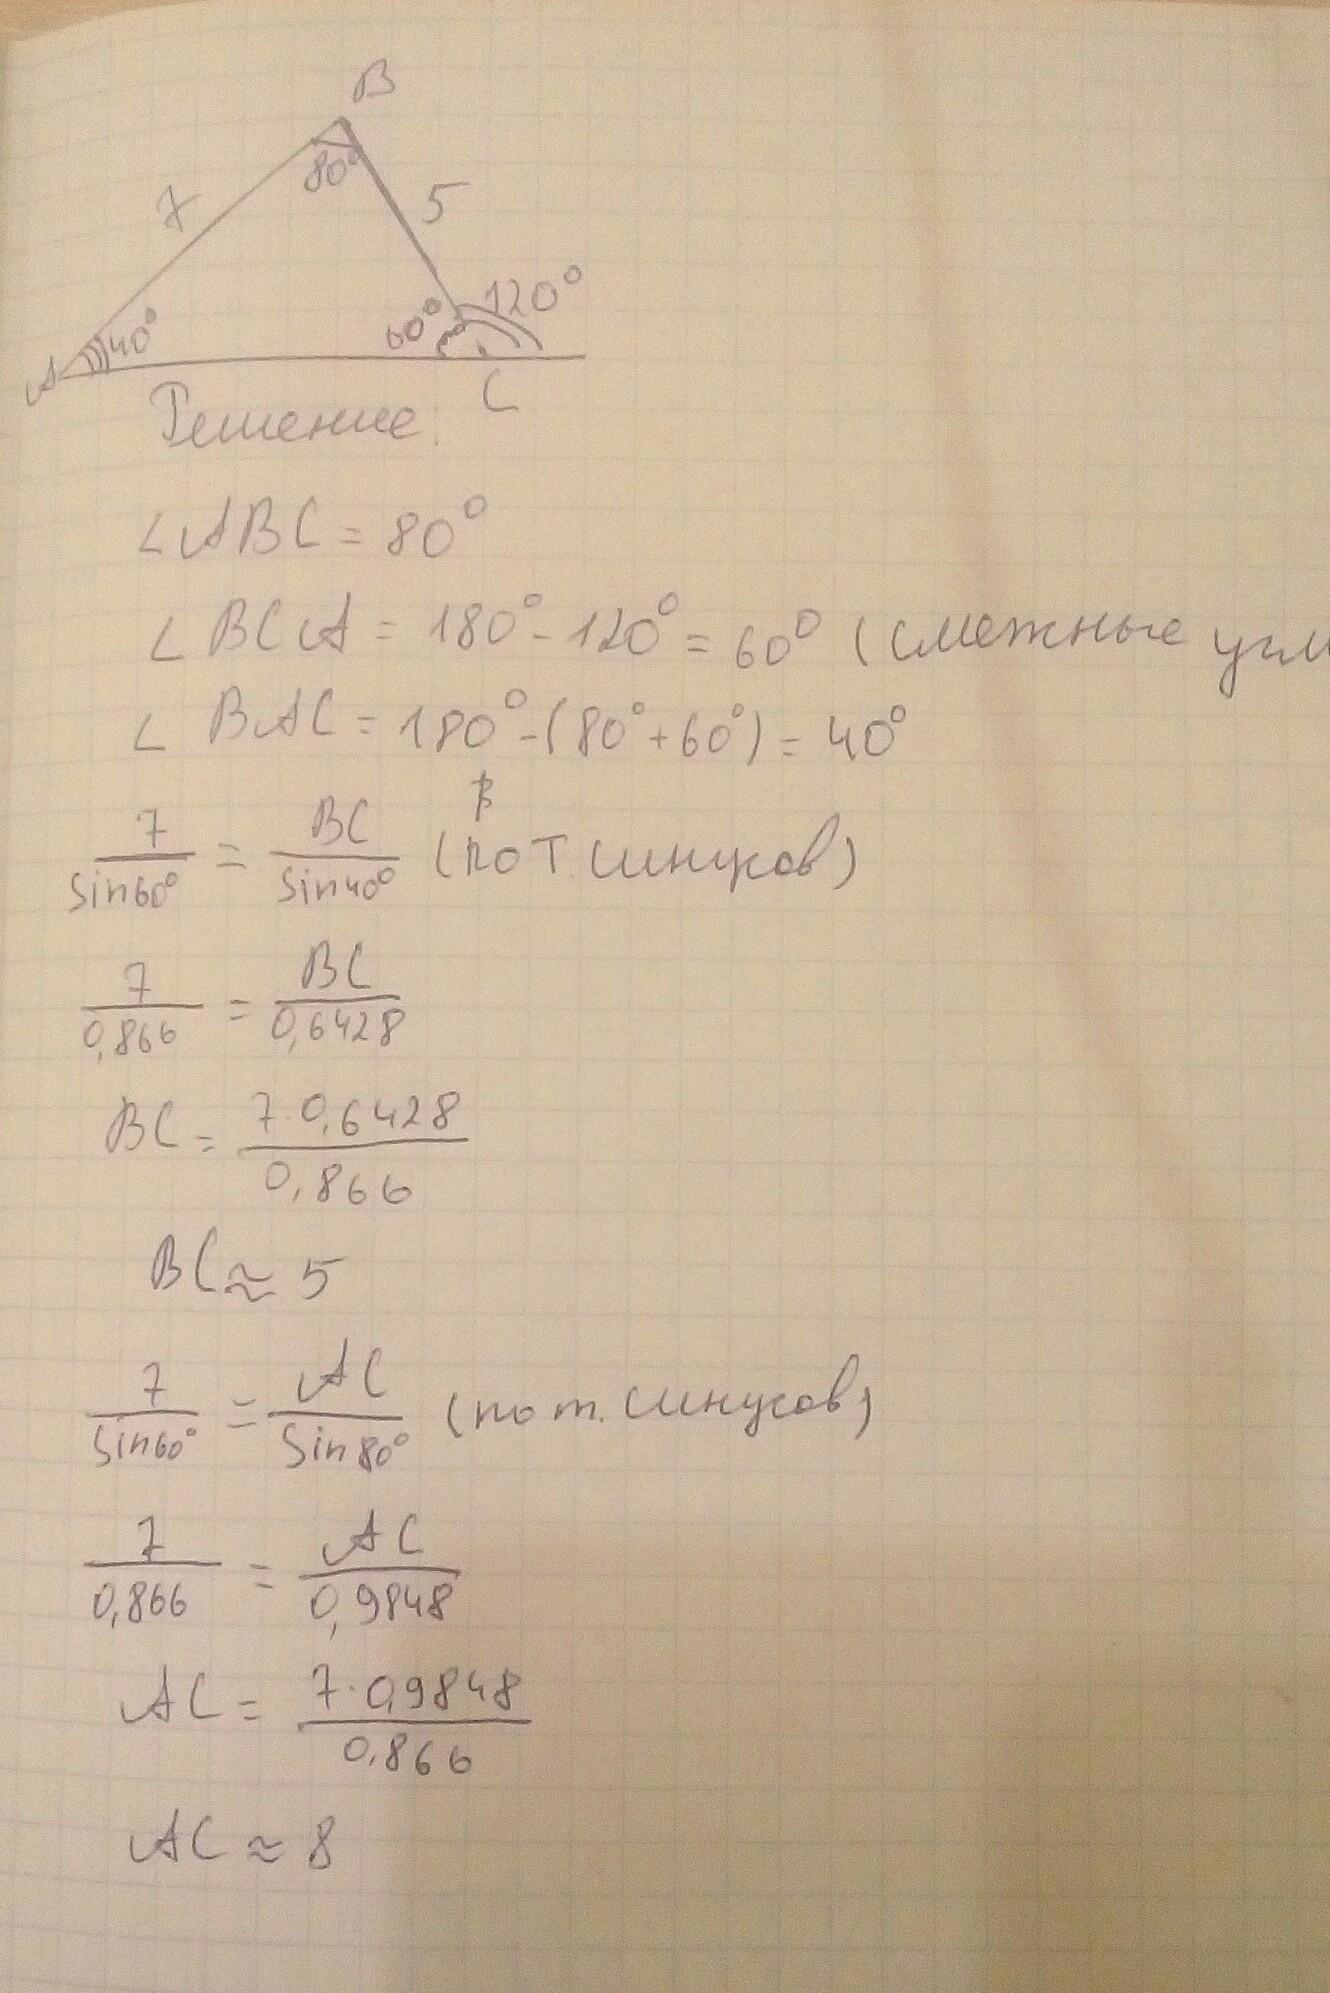 B
80°
7
5
40°
60°
120°
A
C
Решение:
∠ABC = 80°
∠BCA = 180° - 120° = 60° (смежные угл
∠BAC = 180° - (80° + 60°) = 40°
7/sin60° = BC/sin40° (по т. синусов)
7/0,866 = BC/0,6428
BC = 7·0,6428/0,866
BC ≈ 5
7/sin60° = AC/sin80° (по т. синусов)
7/0,866 = AC/0,9848
AC = 7·0,9848/0,866
AC ≈ 8